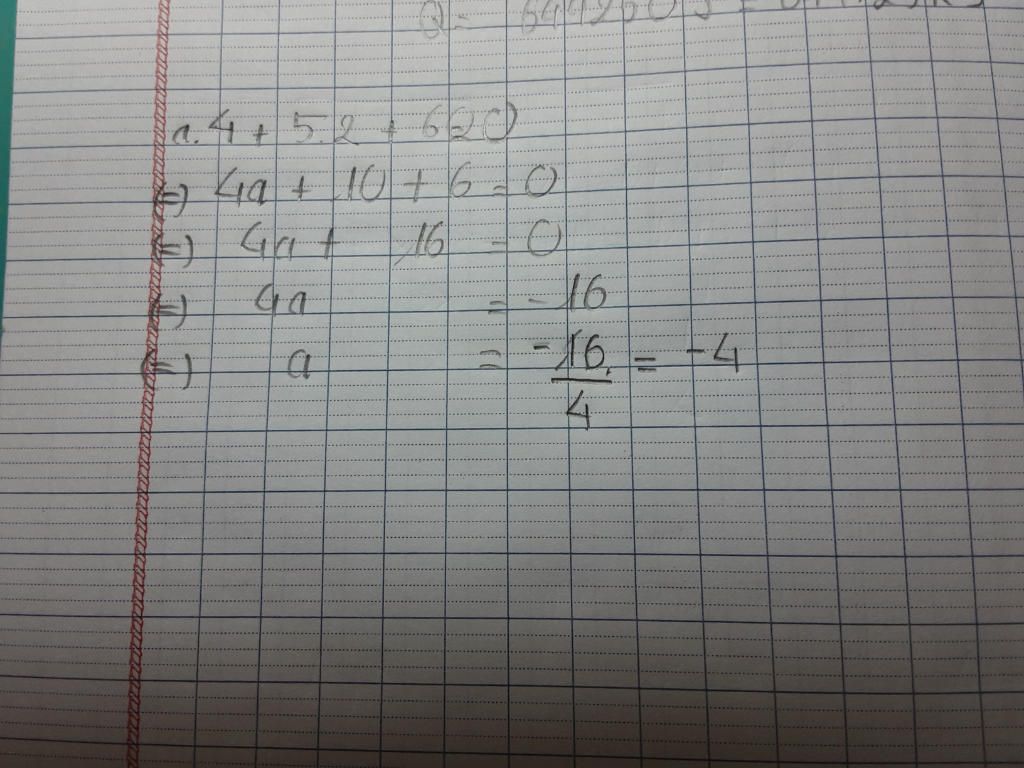 a.4 + 5.2 + 6=0
(=) 4a + 10 + 6 = 0
(=) 4a + 16 = 0
(=) 4a = -16
(=) a = -16/4 = -4